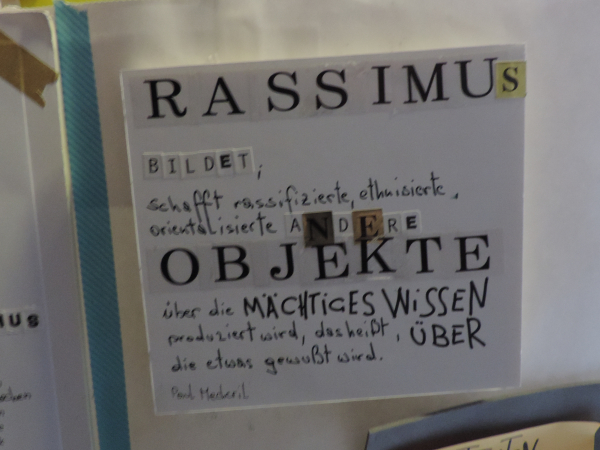 RASSIMUS
BILDET,
schafft rassifizierte, ethnisierte,
orientalisierte ANDERE
OBJEKTE
über die MÄCHTIGES WISSEN
produziert wird, das heißt, ÜBER
die etwas gewußt wird.
Paul Mecheril